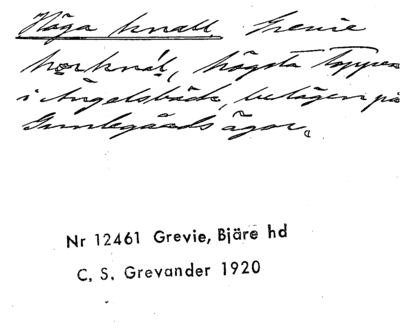 Höga knall. Grevie
högsta toppen
i Ängelsbäck, belägen på
Gamlegårds ägor.
Nr 12461 Grevie, Bjäre hd
C. S. Grevander 1920